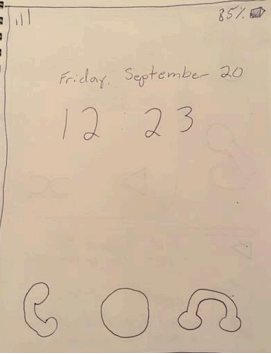 85%
Friday, September 20
12 23